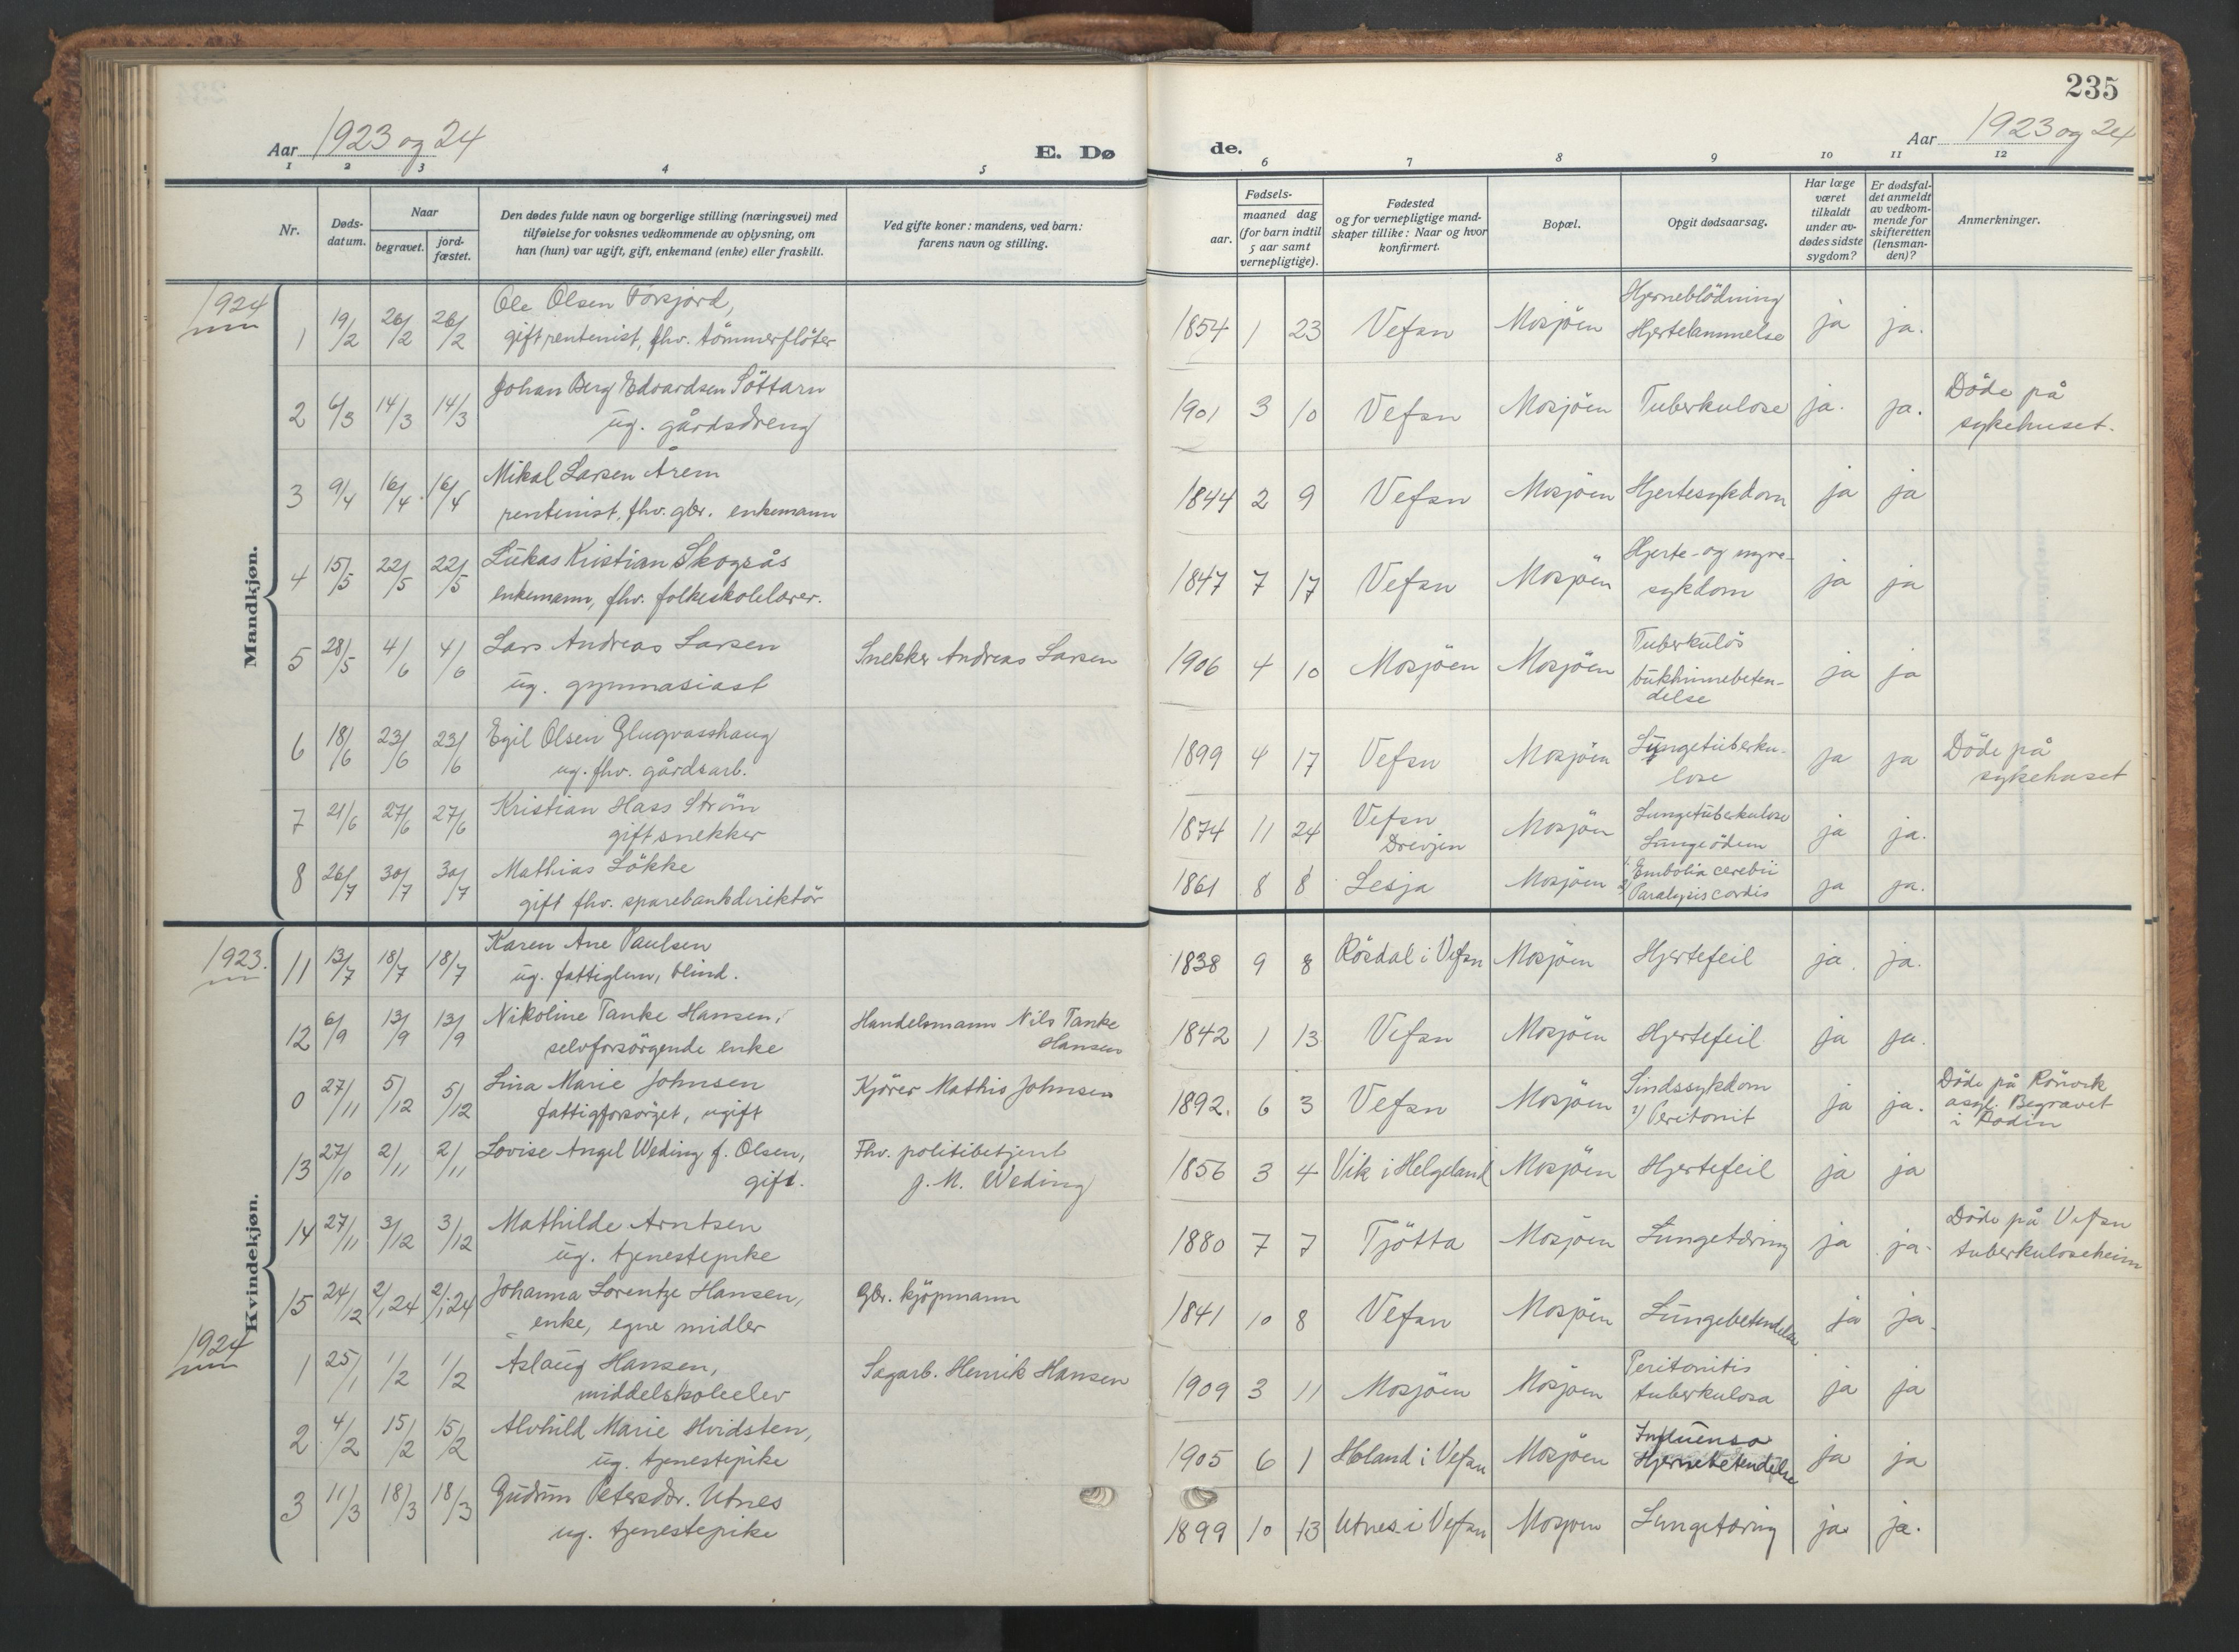 235
Aar 1923 og 24
E. Dø
de.
Aar 1923 og 24
1 2 3 4 5 6 7 8 9 10 11 12
Nr.
Døds-
datum.
Naar
begravet.
jord-
fæstet.
Den dødes fulde navn og borgerlige stilling (næringsvei) med
tilføielse for voksnes vedkommende av oplysning, om
han (hun) var ugift, gift, enkemand (enke) eller fraskilt.
Ved gifte koner: mandens, ved barn:
farens navn og stilling.
Fødsels-
aar.
maaned dag
(for barn indtil
5 aar samt
vernepligtige).
Fødested
og for vernepligtige mand-
skaper tillike: Naar og hvor
konfirmert.
Bopæl.
Opgit dødsaarsag.
Har læge
været
tilkaldt
under av-
dødes sidste
sygdom?
Er dødsfal-
det anmeldt
av vedkom-
mende for
skifteretten
(lensman-
den)?
Anmerkninger.
Mandkjøn.
1924
1 19/2 26/2 26/2 Ole Olsen Forsjord,
gift rentenist, fhv. tömmerflöter
1854 1 23 Vefsn Mosjöen Hjerneblödning
Hjertelammelse ja ja.
2 6/3 14/3 14/3 Johan Berg Edvardsen Söttarn
ug. gårdsdreng
1901 3 10 Vefsn Mosjöen Tuberkulose ja. ja. Döde på
sykehuset.
3 9/4 16/4 16/4 Mikal Larsen Årem
rentenist, fhv. gbr. enkemann
1844 2 9 Vefsn Mosjöen Hjertesykdom ja ja
4 15/5 22/5 22/5 Lukas Kristian Skogsås
enkemann, fhv. folkeskolelærer.
1847 7 17 Vefsn Mosjöen Hjerte- og nyre-
sykdom ja ja
5 28/5 4/6 4/6 Lars Andreas Larsen
ug. gymnasiast
Snekker Andreas Larsen
1906 4 10 Mosjöen Mosjöen Tuberkulös
bukhinnebeten-
delse ja ja
6 18/6 23/6 23/6 Egil Olsen Glugvasshaug
ug. fhv. gårdsarb.
1899 4 17 Vefsn Mosjöen Lungetuberku-
lose ja ja Döde på
sykehuset
7 21/6 27/6 27/6 Kristian Hass Ström
gift snekker
1874 11 24 Vefsn
Drevjen Mosjöen Lungetuberkulose
Lungeödem ja ja.
8 26/7 30/7 30/7 Mathias Lökke
gift fhv. sparebankdirektör
1861 8 8 Lesja Mosjöen 1/ Embolia cerebii
2/ Paralysis cordis ja ja.
Kvindekjøn.
1923.
11 13/7 18/7 18/7 Karen Ane Paulsen
ug. fattiglem, blind.
1838 9 8 Rösdal i Vefsn Mosjöen Hjertefeil ja. ja.
12 6/9 13/9 13/9 Nikoline Tanke Hansen,
selvforsörgende enke
Handelsmann Nils Tanke
Hansen
1842 1 13 Vefsn Mosjöen Hjertefeil ja ja.
0 27/11 5/12 5/12 Lina Marie Johnsen
fattigforsörget, ugift
Kjörer Mathis Johnsen
1892. 6 3 Vefsn Mosjöen Sindssykdom
2/ Peritonit ja ja. Döde på Rönvik
asyl. Begravet
i Bodin
13 27/10 2/11 2/11 Lovise Angel Weding f. Olsen,
gift.
Fhv. politibetjent
J. M. Weding
1856 3 4 Vik i Helgeland Mosjöen Hjertefeil ja ja
14 27/11 3/12 3/12 Mathilde Arntsen
ug. tjenestepike
1880 7 7 Tjötta Mosjöen Lungetæring ja ja. Döde på Vefsn
tuberkuloseheim
15 24/12 2/1 24 2/1 24 Johanna Lorentze Hansen,
enke, egne midler
Gbr. kjöpmann
1841 10 8 Vefsn Mosjöen Lungebetendelse ja ja.
1924
1 25/1 1/2 1/2 Aslaug Hansen,
middelskoleelev
Sagarb. Henrik Hansen
1909 3 11 Mosjöen Mosjöen Peritonitis
tuberkulosa ja ja
2 4/2 15/2 15/2 Alvhild Marie Hvidsten,
ug. tjenestepike
1905 6 1 Holand i Vefsn Mosjöen Influensa
Hjernebetendelse ja ja
3 11/3 18/3 18/3 Gudrun Petersdtr. Utnes
ug. tjenestepike
1899 10 13 Utnes i Vefsn Mosjöen Lungetæring ja ja.